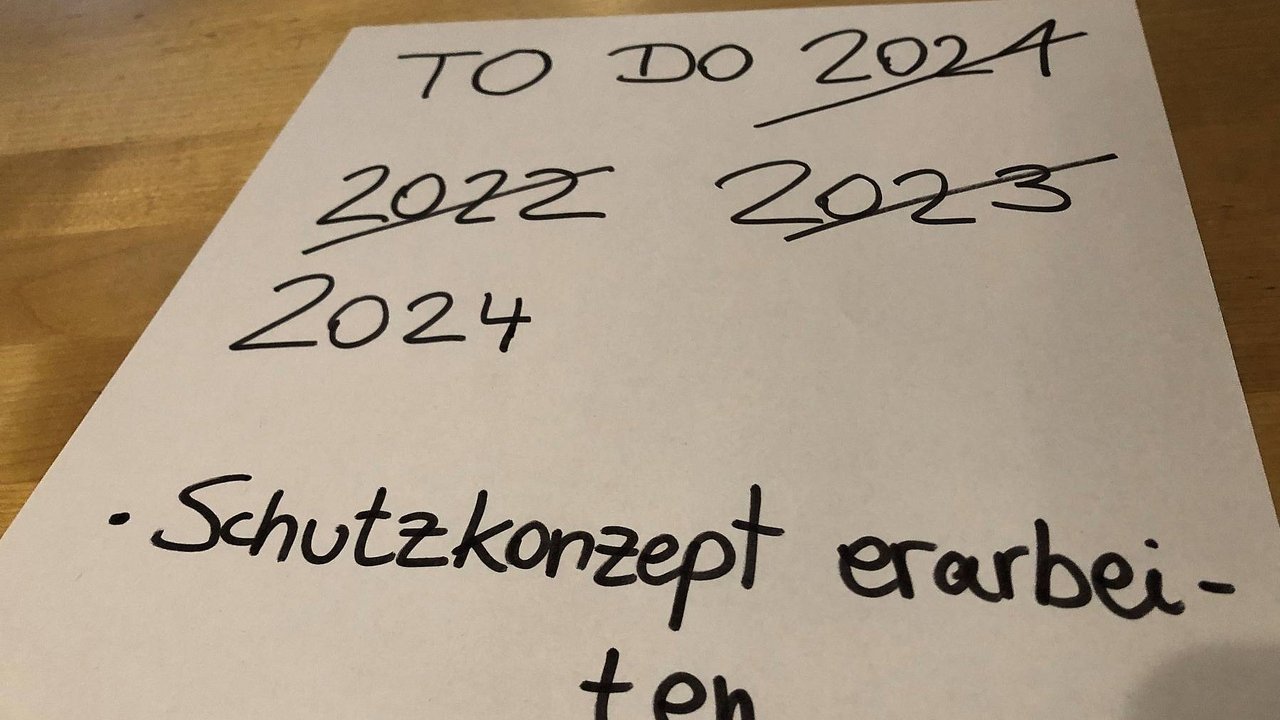 TO DO 2021
2022 2023
2024
· Schutzkonzept erarbei-
ten